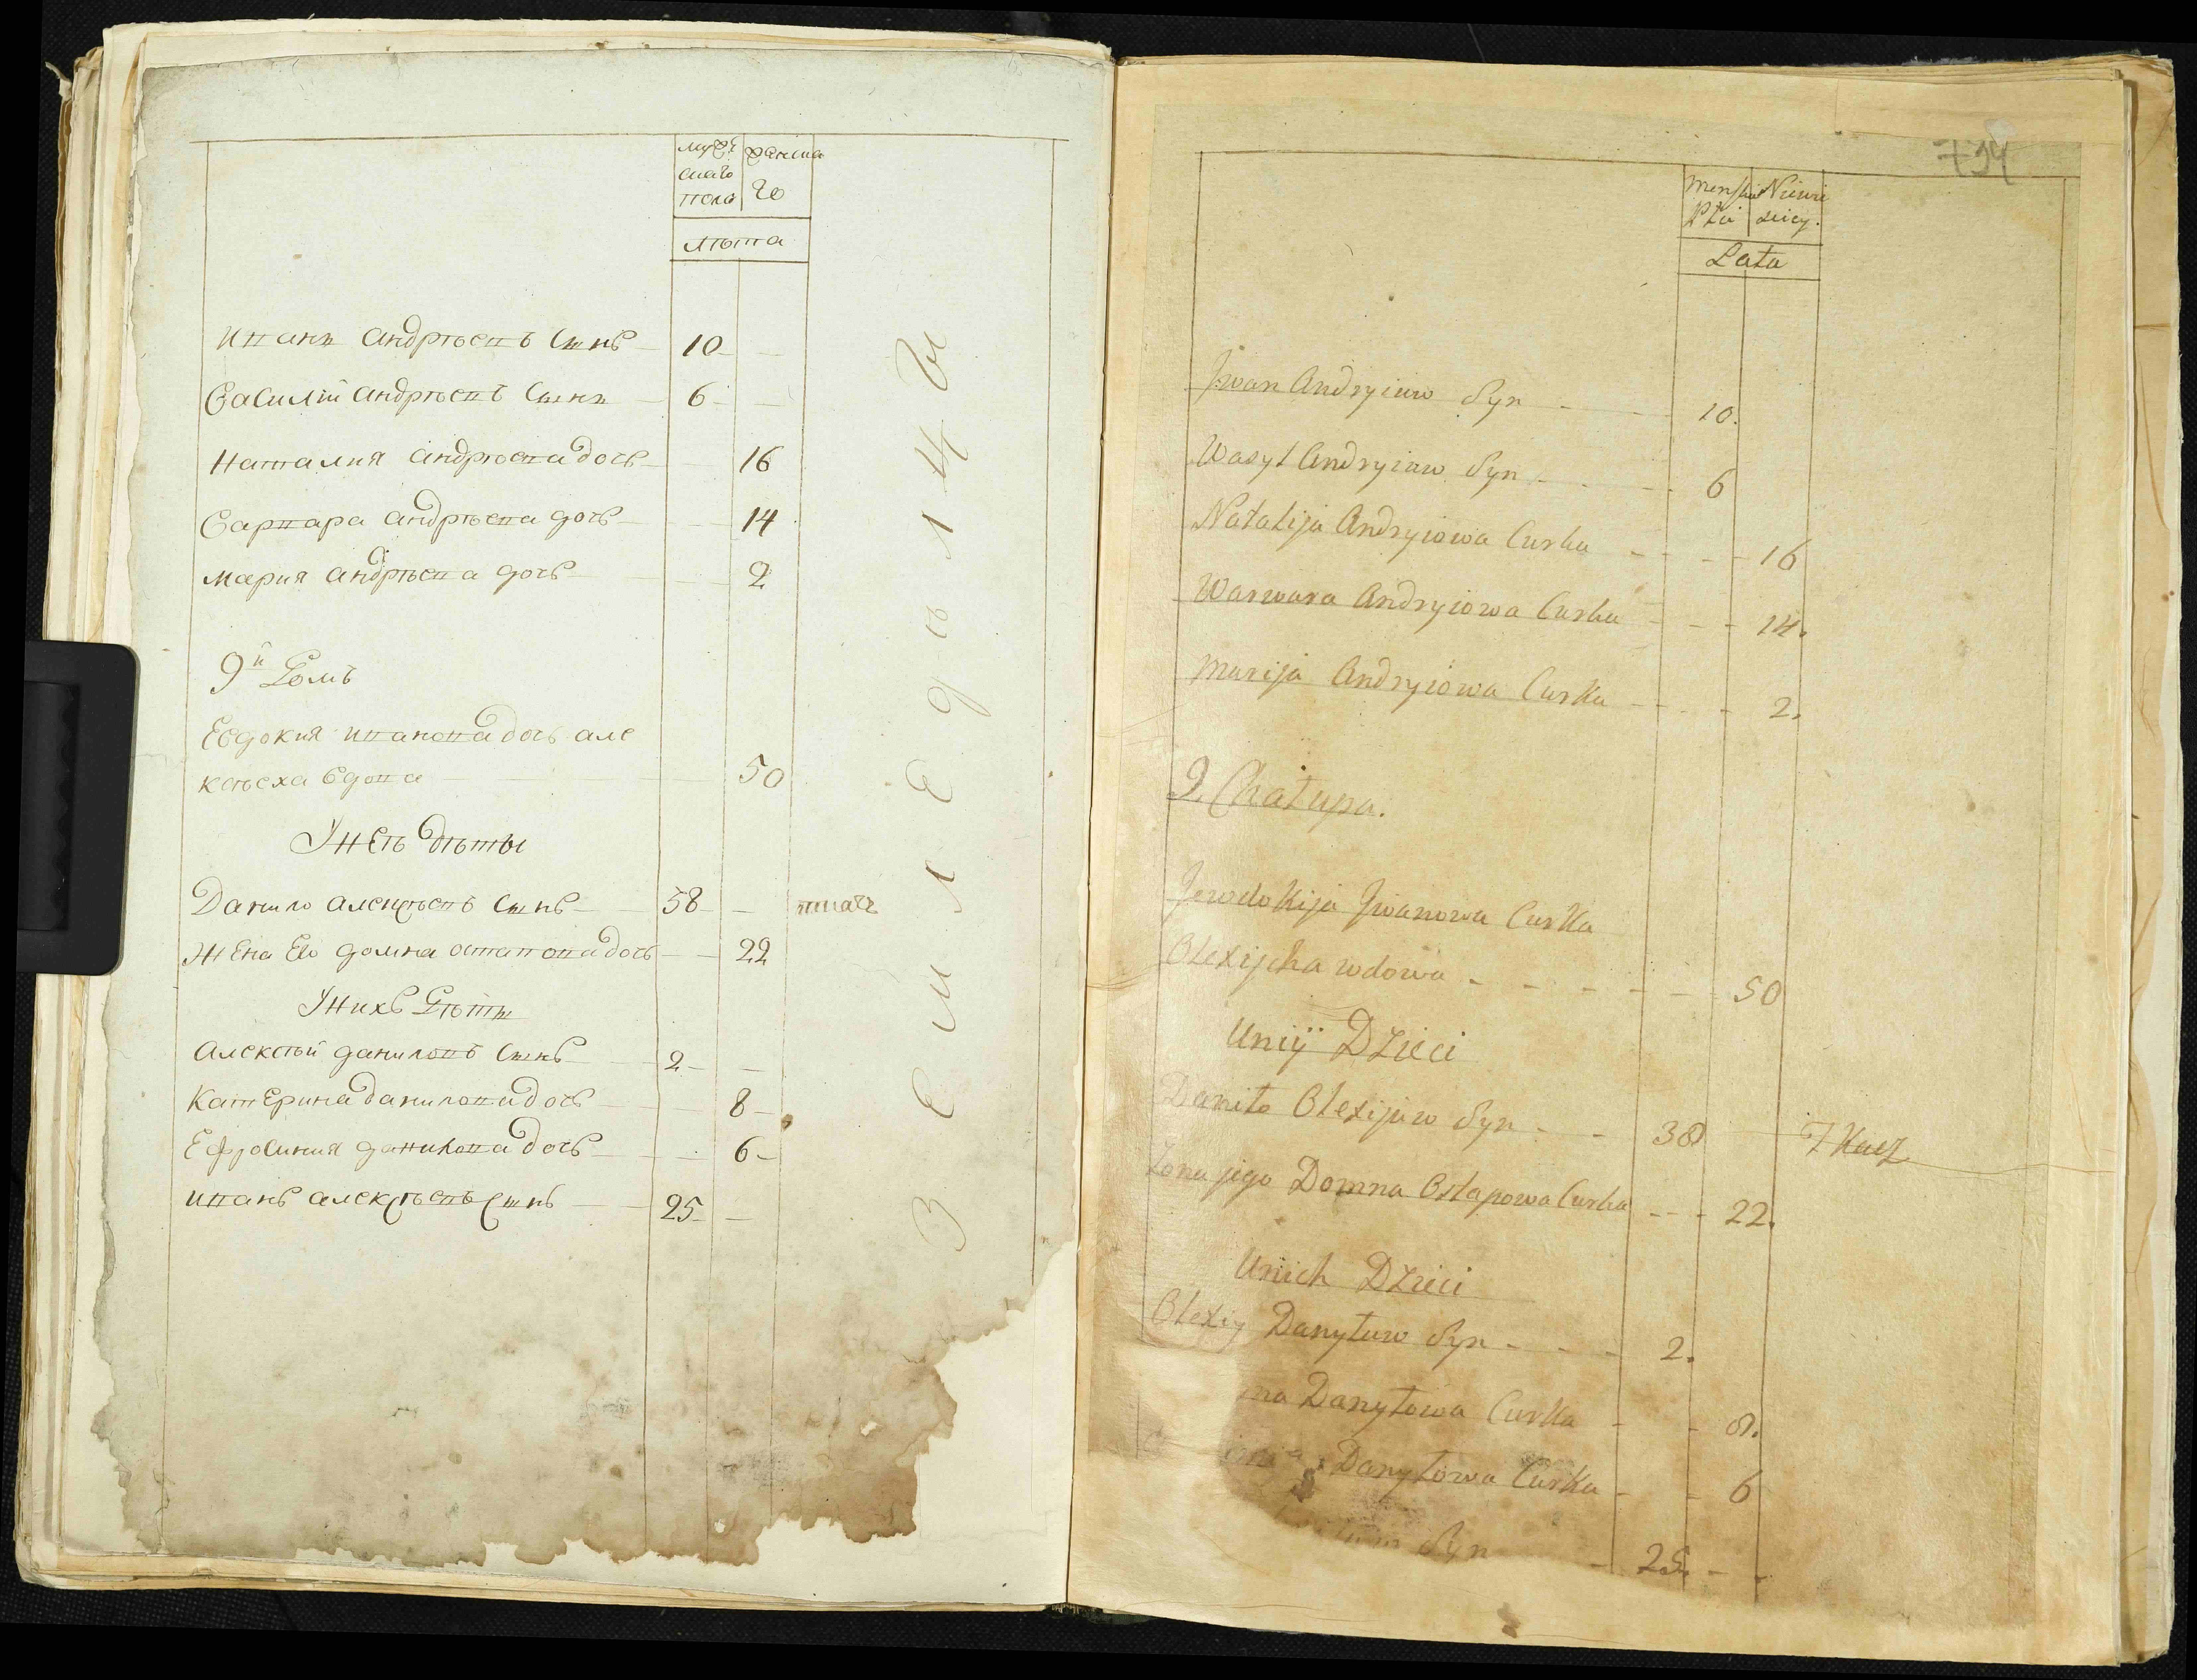 мужескаго пола | женскаго
лѣта
Иванъ Андрѣевъ сынъ 10
Василій Андрѣевъ сынъ 6
Наталия Андрѣева дочь 16
Варвара Андрѣева дочь 14
Мария Андрѣева дочь 2
9й Домъ
Евдокия Иванова дочь Але
ксѣеха вдова 50
У неѣ дѣты
Данило Алексѣевъ сынъ 58 ткачъ
Жена Его Домна Остапова дочь 22
У нихъ Дѣты
Алексѣй Даниловъ сынъ 2
Катерина Данилова дочь 8
Ефросиния Данилова дочь 6
Иванъ Алексѣевъ сынъ 25
794
Męskiej Płci | Niewieściey.
Lata
Jwan Andryiuw Syn 10.
Wasyl Andryiuw Syn 6
Natalija Andryiowa Curka 16
Warwara Andryiowa Curka 14.
Marija Andryiowa Curka 2.
9. Chałupa.
Jewdokija Jwanowa Curka
Olexijcha wdowa 50
Uniji Dzieci
Daniło Olexijuw Syn 38 Tkacz
Zona jego Domna Ostapowa Curka 22.
Unich Dzieci
Olexiy Danyłuw Syn 2.
na Danyłowa Curka 8.
Danyłowa Curka 6
Syn 25